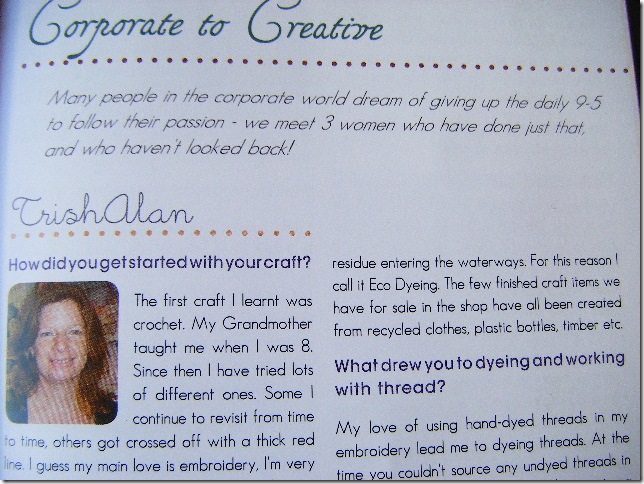 Corporate to Creative
Many people in the corporate world dream of giving up the daily 9-5
to follow their passion - we meet 3 women who have done just that,
and who haven't looked back!
Trish Alan
How did you get started with your craft?
The first craft I learnt was
crochet. My Grandmother
taught me when I was 8.
Since then I have tried lots
of different ones. Some I
continue to revisit from time
to time, others got crossed off with a thick red
line. I guess my main love is embroidery, I'm very
residue entering the waterways. For this reason I
call it Eco Dyeing. The few finished craft items we
have for sale in the shop have all been created
from recycled clothes, plastic bottles, timber etc.
What drew you to dyeing and working
with thread?
My love of using hand-dyed threads in my
embroidery lead me to dyeing threads. At the
time you couldn't source any undyed threads in